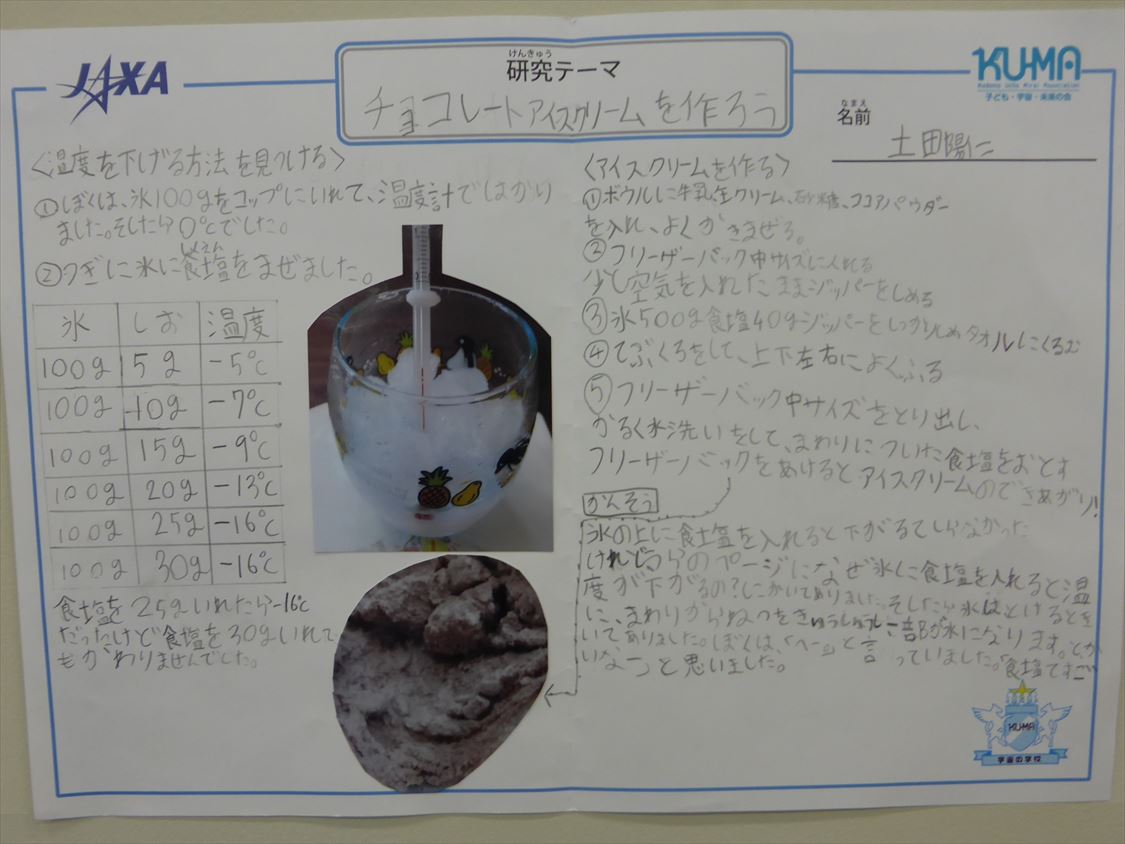 JAXA
けんきゅう
研究テーマ
チョコレートアイスクリームを作ろう
KU-MA
Kodomo Uchu Mirai Association
子ども・宇宙・未来の会
なまえ
名前
土田陽仁
〈温度を下げる方法を見つける〉
①ぼくは、氷100gをコップにいれて、温度計ではかり
ました。そしたら0℃でした。
しょくえん
②つぎに氷に食塩をまぜました。
氷 しお 温度
100g 5g -5℃
100g 10g -7℃
100g 15g -9℃
100g 20g -13℃
100g 25g -16℃
100g 30g -16℃
食塩を25gいれたら-16℃
だったけど食塩を30gいれて
もかわりませんでした。
〈アイスクリームを作る〉
①ボウルに牛乳、生クリーム、砂糖、ココアパウダー
を入れ、よくかきまぜる。
②フリーザーバック中サイズに入れる
少し空気を入れたままジッパーをしめる
③氷500g食塩40gジッパーをしっかりしめタオルにくるむ
④てぶくろをして、上下左右によくふる
⑤フリーザーバック中サイズをとり出し、
かるく水洗いをして、まわりについた食塩をおとす
フリーザーバックをあけるとアイスクリームのできあがり!
かんそう
氷の上に食塩を入れると下がるてしらなかった
けれどうらのページになぜ氷に食塩を入れると温
度が下がるの?にかいてありました。そしたら氷はとけるとき
に、まわりからねつをきゅうしゅうし一部が水になります。とか
いてありました。ぼくは、「へー」と言っていました。「食塩てすご
いなー」と思いました。
KU-MA
宇宙の学校